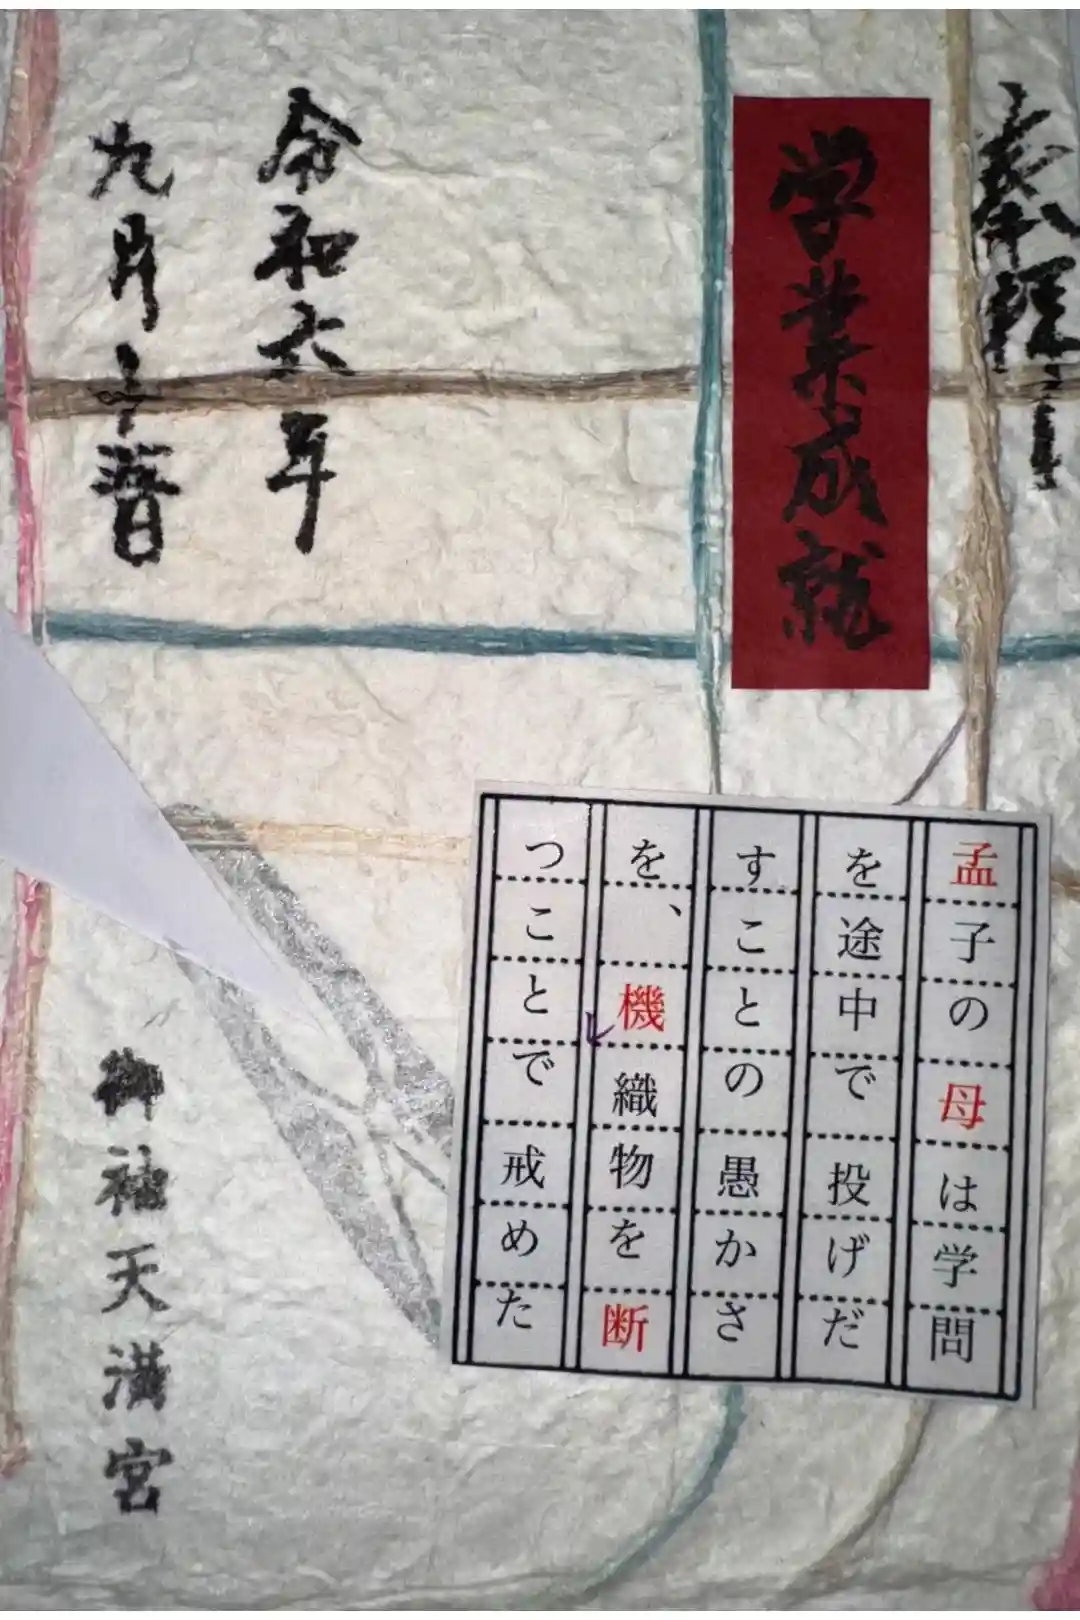 奉拝
学業成就
令和六年
九月十
孟子の母は学問
を途中で投げだ
すことの愚かさ
を、機織物を断
つことで戒めた
御袖天満宮